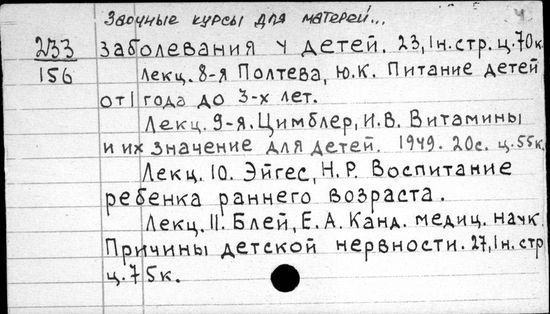 Заочные курсы для матерей...
4
233 заболевания у детей. 23, 1н. стр. ц. 70к.
156 Лекц. 8-я Полтева, Ю.К. Питание детей
от 1 года до 3-х лет.
Лекц. 9-я. Цимблер, И.В. Витамины
и их значение для детей. 1949. 20с. ц. 55к.
Лекц. 10. Эйгес, Н.Р. Воспитание
ребенка раннего возраста.
Лекц. 11. Блей, Е.А. Канд. медиц. наук
Причины детской нервности. 27, 1н. стр
ц. 75к.